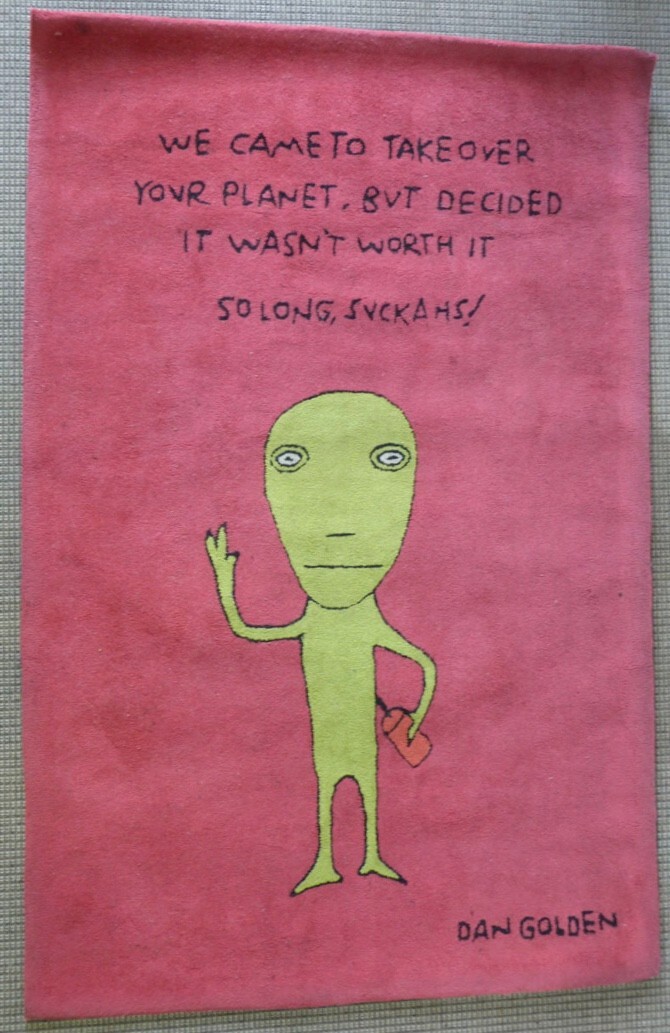 WE CAME TO TAKE OVER
YOUR PLANET, BUT DECIDED
IT WASN'T WORTH IT
SO LONG, SUCKAHS!
DAN GOLDEN